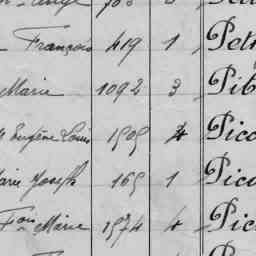 François 419 1 Pet
Marie 1092 3 Pib
Eugène Louis 1505 4 Pico
Marie Joseph 165 1 Pico
Fçois Marie 1574 4 Pic